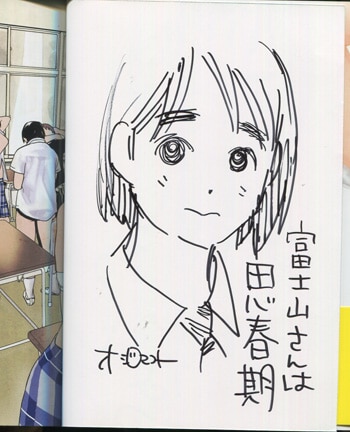 富士山さんは
思春期
オジロマコト